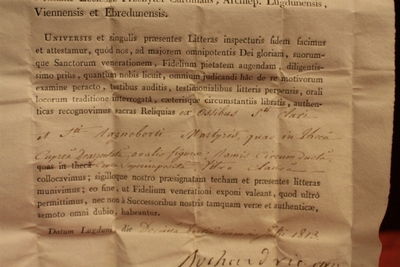 Presbyter Cardinalis, Archiep. Lugdunensis,
Viennensis et Ebredunensis.
UNIVERSIS et singulis præsentes Litteras inspecturis fidem facimus
et attestamur, quod nos, ad majorem omnipotentis Dei gloriam, suorum-
que Sanctorum venerationem, Fidelium pietatem augendam, diligentis-
simo prius, quantùm nobis licuit, omnium judicandi hâc de re motivorum
examine peracto, testibus auditis, testimonialibus litteris perpensis, orali
locorum traditione interrogatâ, cæterisque circumstantiis libratis, authen-
ticas recognovimus sacras Reliquias ex Ossibus Sti Clari
et Sti Ragneberti Martyris, quas in thecâ
Cupreâ ovalis figuræ circum ductâ
quas in thecâ
collocavimus; sigilloque nostro præsignatam thecam et præsentes litteras
munivimus; eo fine, ut Fidelium venerationi exponi valeant, quod ultrò
permittimus, nec non à Successoribus nostris tamquam veræ et authenticæ,
semoto omni dubio, habeantur.
Datum Lugduni, die 1813